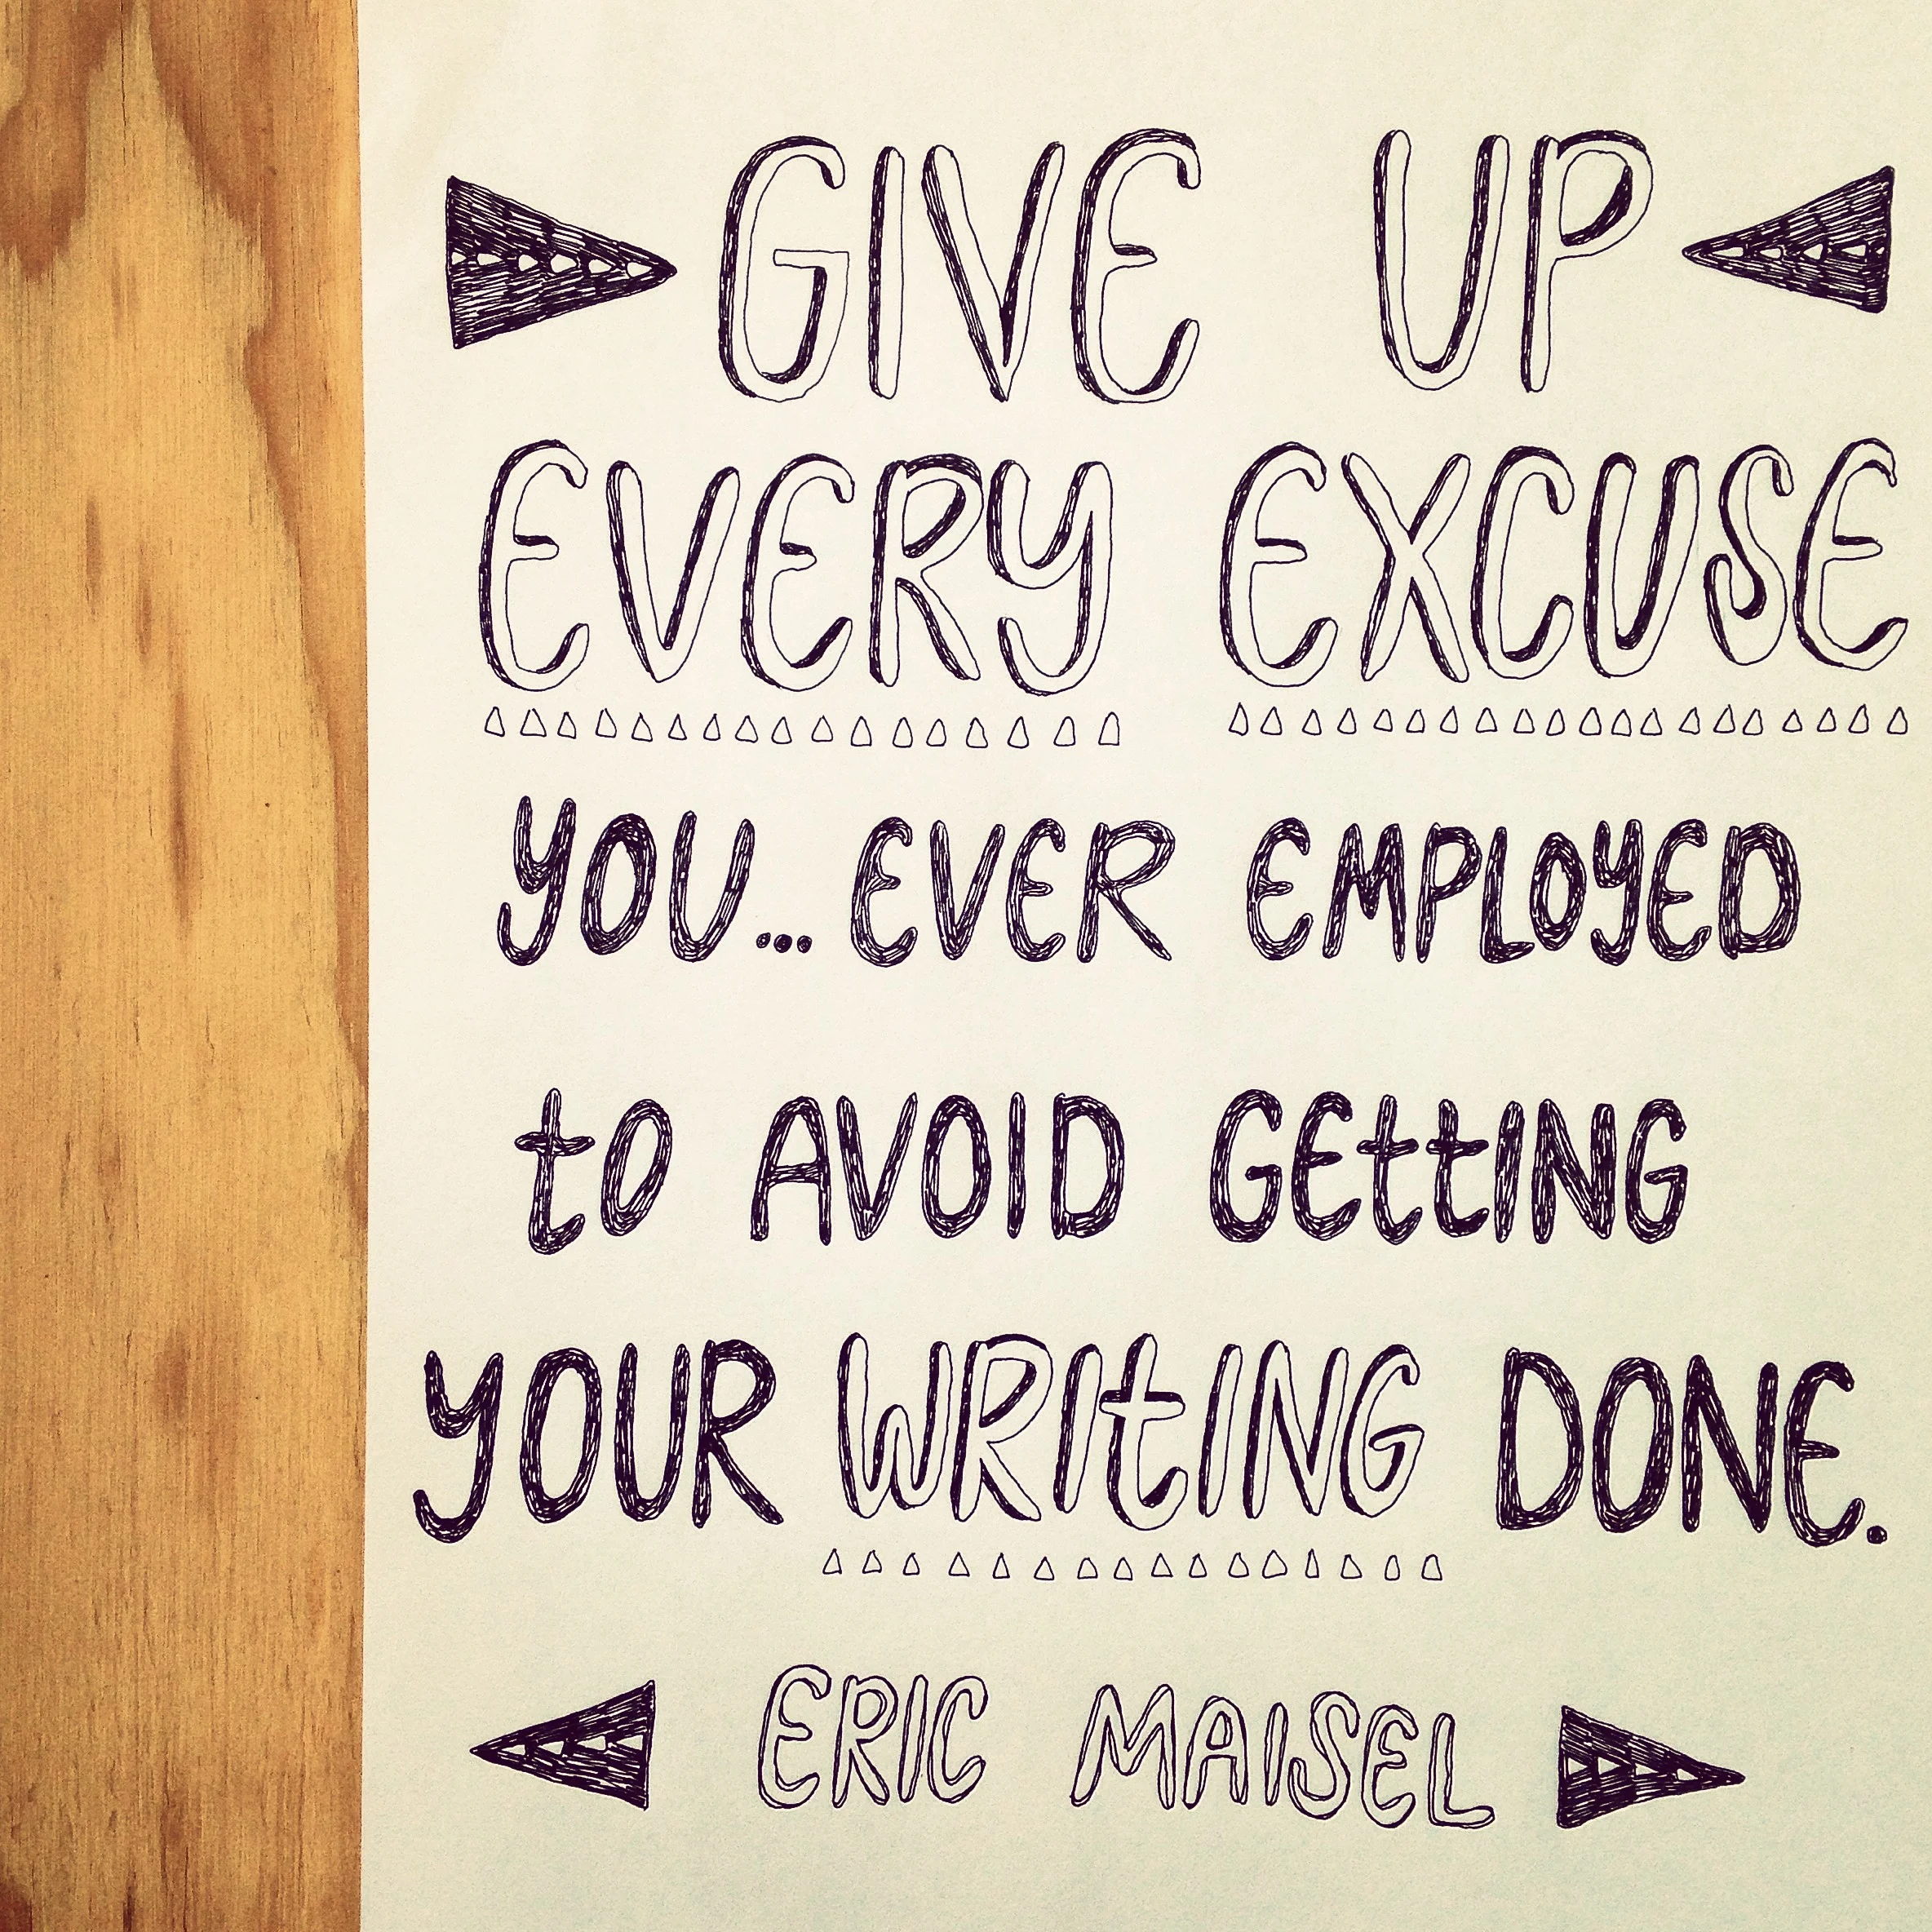 GIVE UP
EVERY EXCUSE
YOU... EVER EMPLOYED
to AVOID GEttING
YOUR WRItING DONE.
ERIC MAISEL